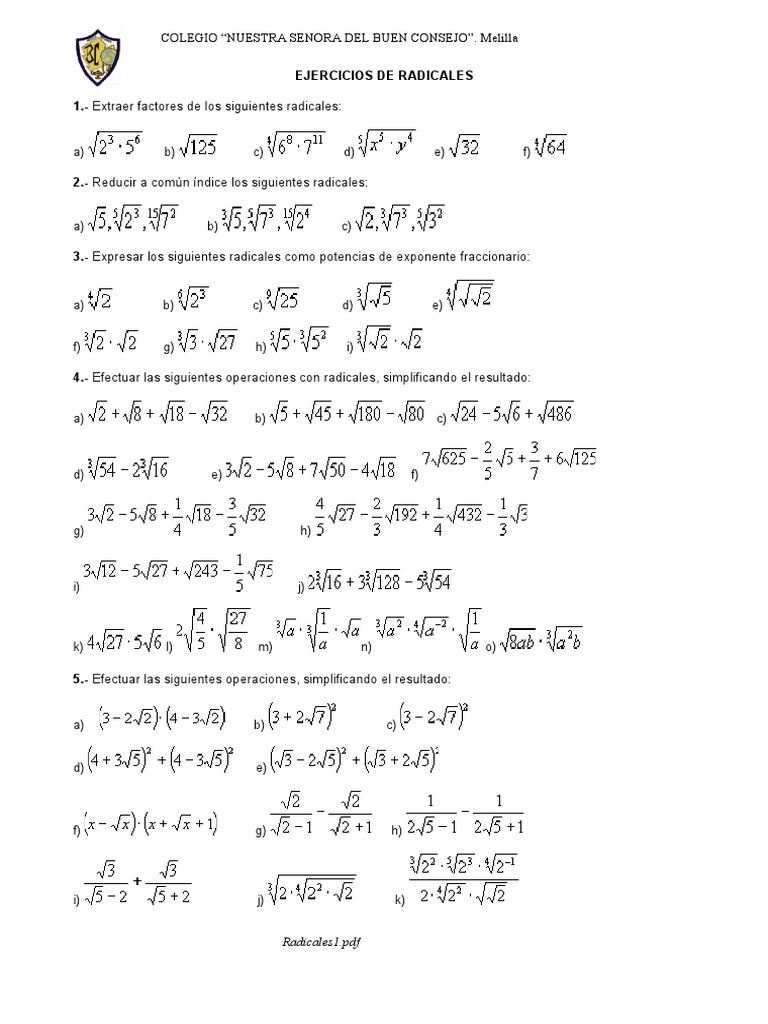 COLEGIO “NUESTRA SENORA DEL BUEN CONSEJO”. Melilla
EJERCICIOS DE RADICALES
1.- Extraer factores de los siguientes radicales:
a) √(2³·5⁶) b) √125 c) ⁴√(6⁸·7¹¹) d) ⁵√(x⁵·y⁴) e) √32 f) ⁴√64
2.- Reducir a común índice los siguientes radicales:
a) √5, ⁵√2³, ¹⁵√7² b) ³√5, ⁵√7³, ¹⁵√2⁴ c) √2, ³√7³, ⁵√3²
3.- Expresar los siguientes radicales como potencias de exponente fraccionario:
a) ⁴√2 b) ⁶√2³ c) ⁹√25 d) ³√(√5) e) ⁴√(√(√2))
f) ³√2·√2 g) ³√3·√27 h) ⁵√5·³√5² i) ³√(√2)·√2
4.- Efectuar las siguientes operaciones con radicales, simplificando el resultado:
a) √2+√8+√18−√32 b) √5+√45+√180−√80 c) √24−5√6+√486
d) ³√54−2³√16 e) 3√2−5√8+7√50−4√18 f) 7√625−2/5√5+3/7+6√125
g) 3√2−5√8+1/4√18−3/5√32 h) 4/5√27−2/3√192+1/4√432−1/3√3
i) 3√12−5√27+√243−1/5√75 j) 2³√16+3³√128−5³√54
k) 4√27·5√6 l) 2√(4/5)·√(27/8) m) ³√a·³√(1/a)·√a n) ³√a²·⁴√a⁻²·√(1/a) o) √(8ab)·³√(a²b)
5.- Efectuar las siguientes operaciones, simplificando el resultado:
a) (3−2√2)·(4−3√2) b) (3+2√7)² c) (3−2√7)²
d) (4+3√5)²+(4−3√5)² e) (√3−2√5)²+(√3+2√5)²
f) (x−√x)·(x+√x+1) g) √2/(√2−1)−√2/(√2+1) h) 1/(2√5−1)−1/(2√5+1)
i) √3/(√5−2)+√3/(√5+2) j) ³√(2·⁴√(2²·√2)) k) (³√2²·⁵√2³·⁴√2⁻¹)/(2·⁴√2²·√(√2))
Radicales1.pdf